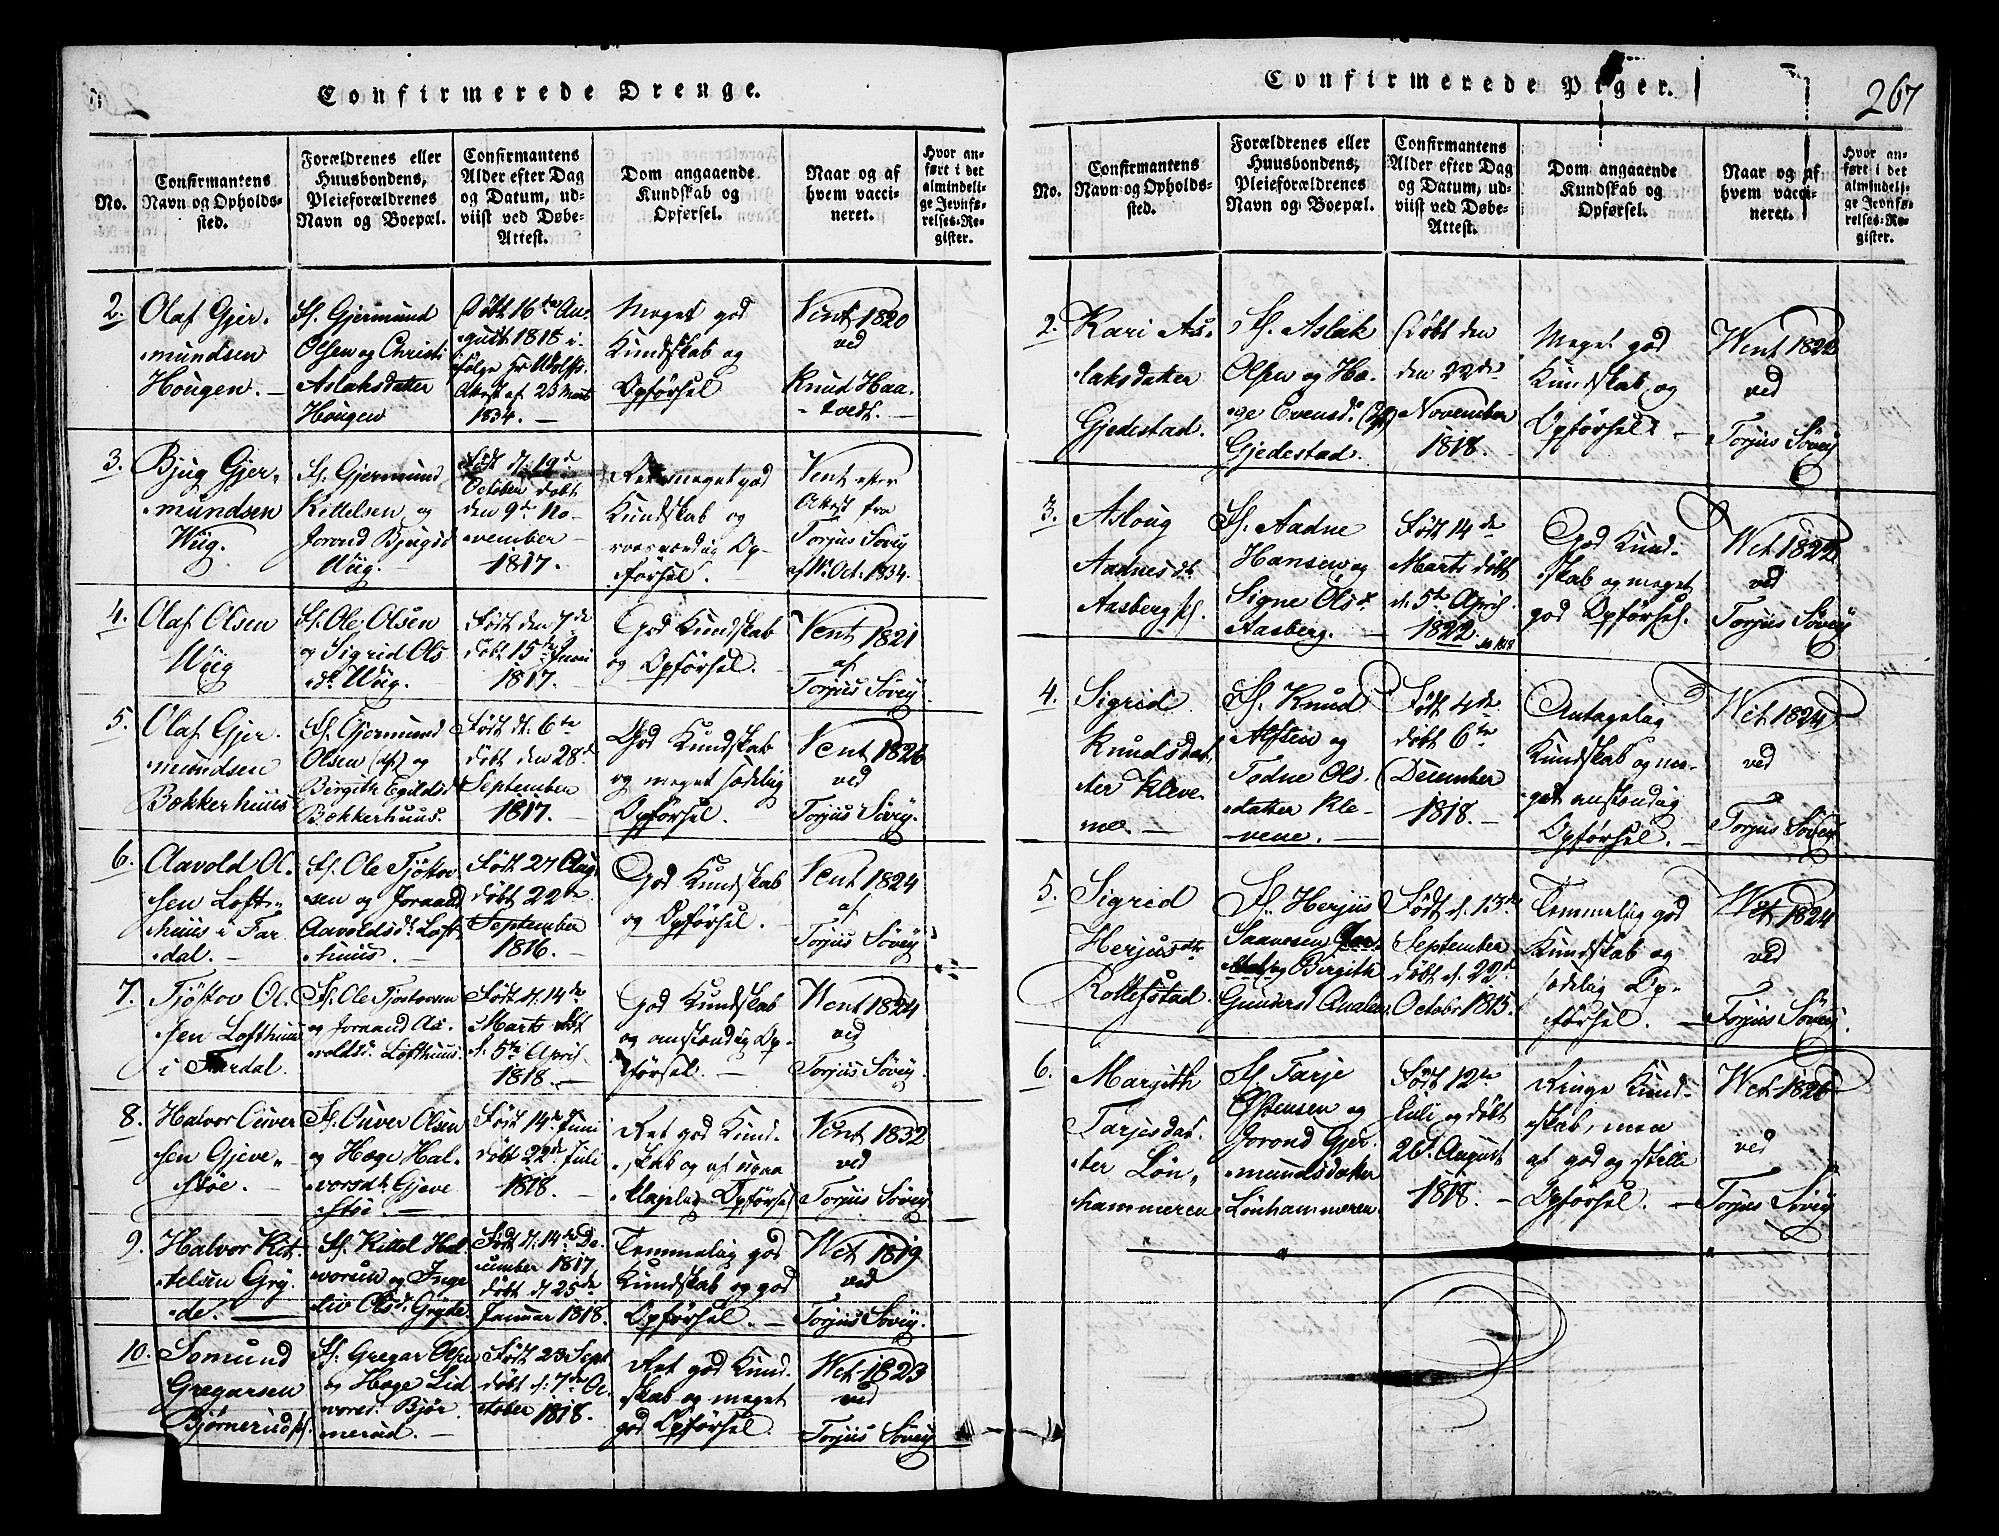 Confirmerede Drenge.
No.
Confirmantens
Navn og Opholds-
sted.
Forældrenes eller
Huusbondens,
Pleieforældrenes
Navn og Boepæl.
Confirmantens
Alder efter Dag
og Datum, ud-
viist ved Døbe-
Attest.
Dom angaaende
Kundskab og
Opførsel.
Naar og af
hvem vacci-
neret.
Hvor an-
ført i det
almindeli-
ge Jevnfø-
relses-Re-
gister.
2.
Olaf Gjer-
mundsen
Hougen.
F. Gjermund
Olsen og Christi
Aslaksdatter
Hougen
Født 16de Au-
gust 1818 i-
følge Hr Adolfs
Attest af 23 Marts
1834.
Meget god
Kundskab og
Opførsel
Vent 1820
ved
Knud Haa-
tvedt.
3.
Bjug Gjer-
mundsen
Wiig.
F. Gjermund
Kittelsen og
Jorond Bjugsd
Wiig.
Født d. 19de
October døbt
den 9de No-
vember
1817.
Ret meget god
Kundskab og
roesværdig Op-
førsel.
Vent efter
Attest fra
Torjus Sövey
Oct. 1834.
4.
Olaf Olsen
Wiig
F. Ole Olsen
og Sigrid Ols
dt. Wiig.
Født den 7de
døbt 15de Juni
1817.
God Kundskab
og Opførsel.
Vent 1821
af
Torjus Sövey
5.
Olaf Gjer-
mundsen
Bækkerhuus
F. Gjermund
Olsen og
Birgith Egildsd
Bækkerhuus.
Født d. 6te
døbt den 28de
September
1817.
God Kundskab
og meget sædelig
Opførsel.
Vent 1826
ved
Torjus Sövey.
6.
Aavold Ol-
sen Loft-
huus i Far-
dal.
F. Ole Tjöstov
sen og Joraand
Aavoldsdt Loft-
huus.
Født 27 Aug.
døbt 22de
September
1816.
God Kundskab
og Opførsel.
Vent 1824
af
Torjus Sövey
7.
Tjöstov Ol-
sen Lofthuus
i Fardal.
F. Ole Tjostovsen
og Joraand Aa-
voldsd. Lofthuus.
Født d. 14de
Marts døbt
d. 5te April
1818.
God Kundskab
og anstændig Op-
førsel.
Vent 1824
ved
Torjus Sövey.
8.
Halvor Ouver
sen Gjeve-
støe.
F. Ouver Olsen
og Hæge Hal-
vorsdt. Gjeve
stöe.
Født 14de Juni
døbt 22de Juli
1818.
Ret god Kund-
skab og af upaa
klagelig Opførsel
Vent 1832
ved
Torjus Sövey.
9.
Halvor Kit-
telsen Gry-
de.
F. Kittel Hal
vorsen og Inge
liv Olsd. Gryde
Født d. 14de De-
cember 1817
døbt d. 25de
Januar 1818.
Temmelig god
Kundskab og god
Opførsel.
Vct 1819
ved
Torjus Sövey.
10.
Somund
Gregarsen
Bjørnerud
F. Gregar Olsen
og Hæge Lid
vorsd. Bjør
nerud.
Født 23 Sept
døbt d. 7de Oc-
tober 1818.
Ret god Kund-
skab og meget
god Opførsel.
Vct. 1823
ved
Torjus Sövey
Confirmerede Piger.
267
No.
Confirmantens
Navn og Opholds-
sted.
Forældrenes eller
Huusbondens,
Pleieforældrenes
Navn og Boepæl.
Confirmantens
Alder efter Dag
og Datum, ud-
viist ved Døbe-
Attest.
Dom angaaende
Kundskab og
Opførsel.
Naar og af
hvem vacci-
neret.
Hvor an-
ført i det
almindeli-
ge Jevnfø-
relses-Re-
gister.
2.
Kari As-
laksdatter
Gjedestad.
F. Aslak
Olsen og Hæ-
ge Evensd.
Gjedestad.
Døbt den
den 22de
November
1818.
Meget god
Kundskab og
Opførsel.
Vent 1822
ved
Torjus Sövey
3.
Asloug
Aadnesdt.
Aasberg
F. Aadne
Hansen og
Signe Olsd.
Aasberg.
Født 14de
Marts døbt
d. 5te April
1822.
God Kund-
skab og meget
god Opførsel.
Vct 1822
ved
Torjus Sövey
4.
Sigrid
Knudsdat-
ter Kleve-
ne.
F. Knud
Alfsen og
Todne Ols-
datter Kle-
vene.
Født 4de
døbt 6te
December
1818.
Antagelig
Kundskab og me-
get anstændig
Opførsel.
Vct 1824
ved
Torjus Sövey.
5.
Sigrid
Herjusdtr
Rollefstad.
F. Herjus
Saavesen
og Birgith
Gundersd Qualen.
Født d. 13de
September
døbt d. 22de
Octobr 1815.
Temmelig god
Kundskab og
sædelig Op-
førsel.
Vct 1824
ved
Torjus Sövey.
6.
Margith
Tarjesdat-
ter Løn-
hammeren
F. Tarje
Østensen og
Jorond Gjer-
mundsdatter
Lönhammeren
Født 12te
Juli og døbt
26de August
1818.
Ringe Kund-
skab, men
af god og stille
Opførsel.
Vct 1826
ved
Torjus Sövey